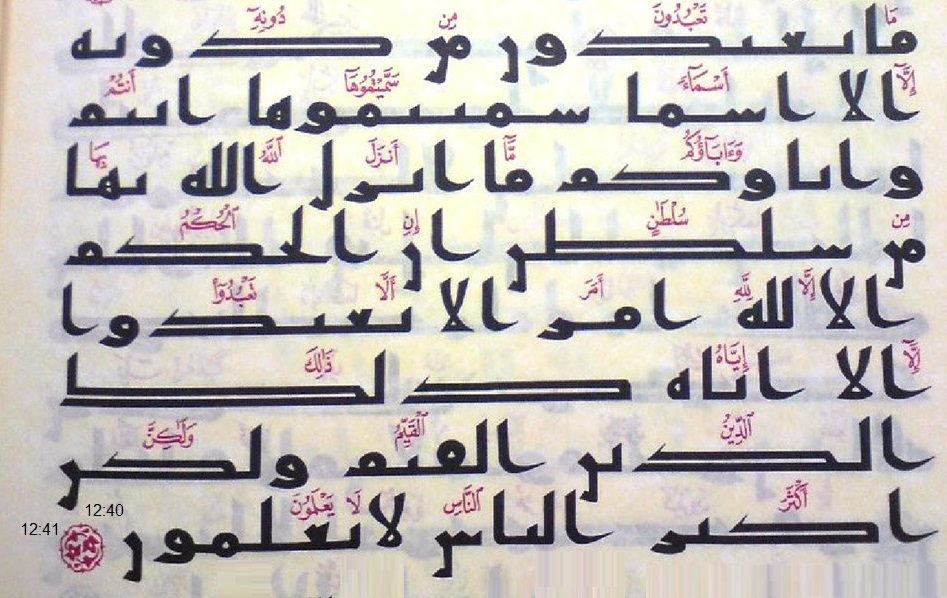 مَا تَعْبُدُونَ مِن دُونِهِۦٓ
ما تعبدون من دونه
إِلَّآ أَسْمَآءً سَمَّيْتُمُوهَآ أَنتُمْ
الا اسما سميتموها انتم
وَءَابَآؤُكُم مَّآ أَنزَلَ ٱللَّهُ بِهَا
واباوكم ما انزل الله بها
مِن سُلْطَٰنٍ إِنِ ٱلْحُكْمُ
من سلطن ان الحكم
إِلَّا لِلَّهِ أَمَرَ أَلَّا تَعْبُدُوٓا۟
الا لله امر الا تعبدوا
إِلَّآ إِيَّاهُ ذَٰلِكَ
الا اياه ذلك
ٱلدِّينُ ٱلْقَيِّمُ وَلَٰكِنَّ
الدين القيم ولكن
أَكْثَرَ ٱلنَّاسِ لَا يَعْلَمُونَ
اكثر الناس لا يعلمون
12:40
12:41